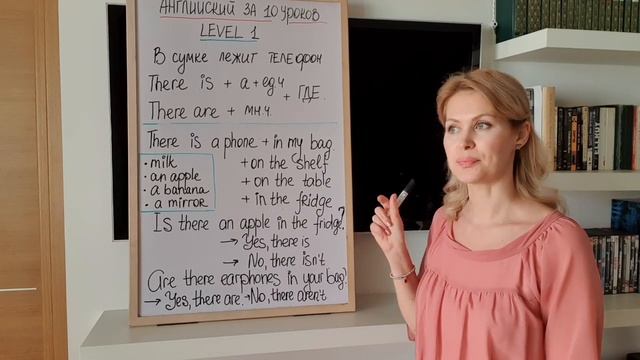 АНГЛИЙСКИЙ ЗА 10 УРОКОВ
LEVEL 1
В СУМКЕ ЛЕЖИТ ТЕЛЕФОН
There is + а + ед.ч + ГДЕ.
There are + мн.ч.
There is a phone + in my bag
· milk + on the shelf
· an apple + on the table
· a banana + in the fridge
· a mirror
Is there an apple in the fridge?
→ Yes, there is
→ No, there isn't
Are there earphones in your bag?
→ Yes, there are. → No, there aren't